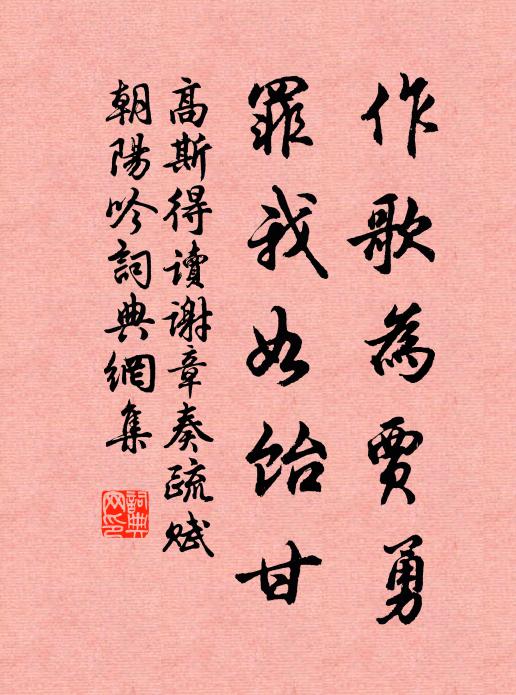 作歌為賈勇
罪我如飴甘
高斯得讀謝章奏疏賦
朝陽吟詞典網集
詞典網印